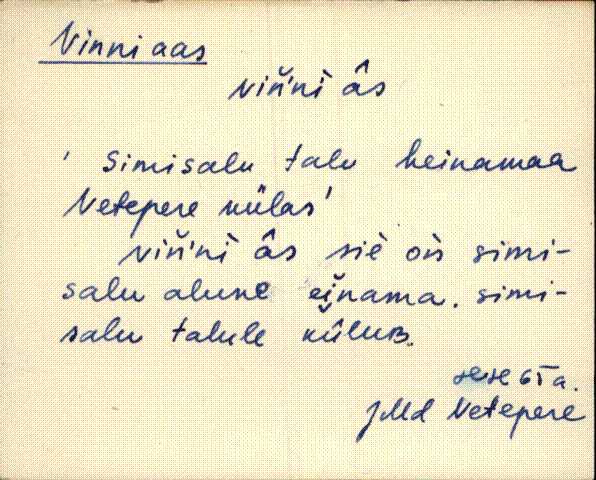 Vinni aas
viňni̮ âs
' Simisalu talu heinamaa
Vetepere külas'
viňni̮ âs siè oǹ simi-
salu alune eìnama. simi-
salu talule kûluʙ.
JMd Vetepere